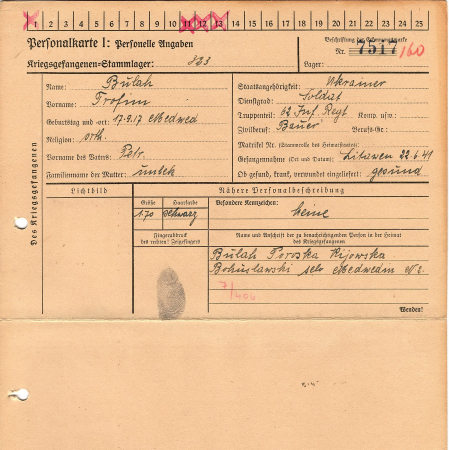 1 2 3 4 5 6 7 8 9 10 11 12 13 14 15 16 17 18 19 20 21 22 23 24 25
Personalkarte I: Personelle Angaben
Kriegsgefangenen-Stammlager:
Beschriftung der Erkennungsmarke
Nr. 7517/60
Lager:
Des Kriegsgefangenen
Name: Bulah
Vorname: Trofim
Geburtstag und -ort: 17.9.17 Medwed
Religion: orth.
Vorname des Vaters: Petr.
Familienname der Mutter: unbek
Staatsangehörigkeit: Ukrainer
Dienstgrad: Soldat
Truppenteil: 62 Inf. Regt Komp. usw.:
Zivilberuf: Bauer Berufs-Gr.:
Matrikel Nr. (Stammrolle des Heimatstaates):
Gefangennahme (Ort und Datum): Litauen 22.6.41
Ob gesund, krank, verwundet eingeliefert: gesund
Lichtbild
Nähere Personalbeschreibung
Größe Haarfarbe
1.70 schwarz
Besondere Kennzeichen:
keine
Fingerabdruck
des rechten! Zeigefingers
Name und Anschrift der zu benachrichtigenden Person in der Heimat
des Kriegsgefangenen
Bulah Poroska Kijowska
Bohuslawski selo Medwedin
Wenden!